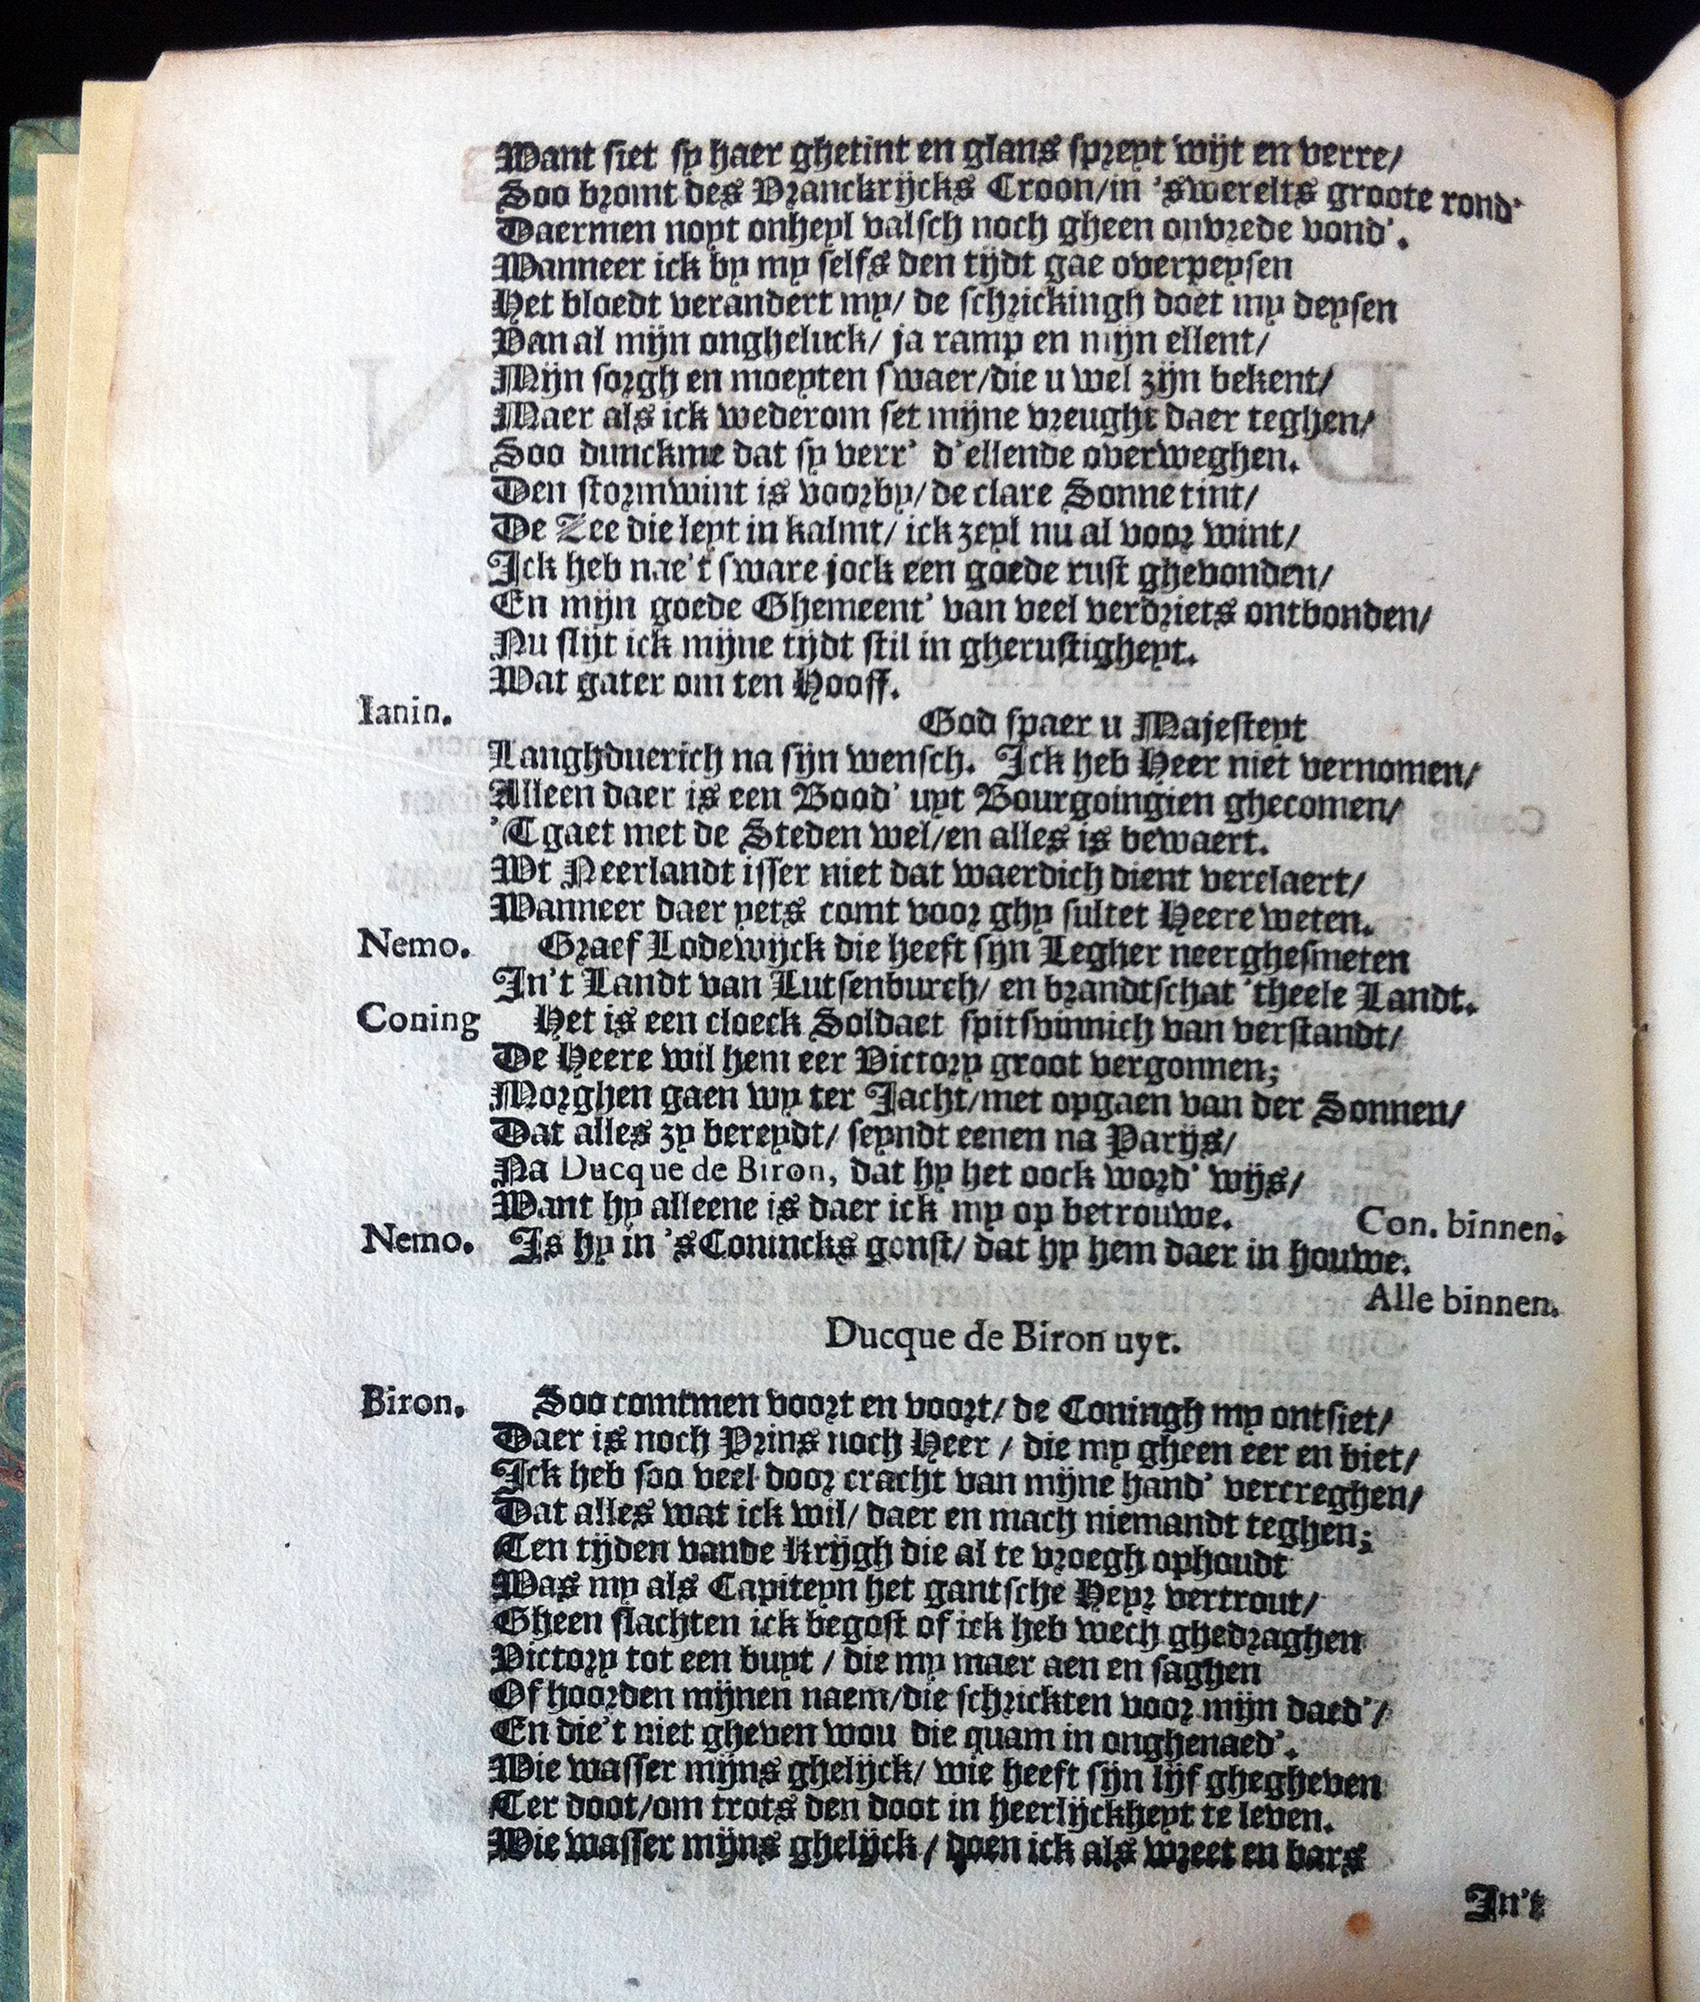 Want siet sy haer ghetint en glans spreyt wijt en verre/
Soo bromt des Vranckrijcks Croon/in 'swerelts groote rond'
Daermen noyt onheyl valsch noch gheen onvrede vond'.
Wanneer ick by my selfs den tijdt gae overpeysen
Het bloedt verandert my/ de schrickingh doet my deysen
Van al mijn ongheluck/ ja ramp en mijn ellent/
Mijn sorgh en moeyten swaer/die u wel zijn bekent/
Maer als ick wederom set mijne vreught daer teghen/
Soo dunckme dat sy verr' d'ellende overweghen.
Den stormwint is voorby/de clare Sonne tint/
De Zee die leyt in kalmt/ ick zeyl nu al voor wint/
Ick heb nae't sware jock een goede rust ghevonden/
En mijn goede Ghemeent' van veel verdriets ontbonden/
Nu slijt ick mijne tijdt stil in gherustigheyt.
Wat gater om ten Hooff.
Ianin. God spaer u Majesteyt
Langhduerich na sijn wensch. Ick heb Heer niet vernomen/
Alleen daer is een Bood' uyt Bourgoingien ghecomen/
'Tgaet met de Steden wel/en alles is bewaert.
Wt Neerlandt isser niet dat waerdich dient verclaert/
Wanneer daer yets comt voor ghy sultet Heere weten.
Nemo. Graef Lodewijck die heeft sijn Legher neerghesmeten
In't Landt van Lutsenburch/ en brandtschat 'theele Landt.
Coning Het is een cloeck Soldaet spitsvinnich van verstandt/
De Heere wil hem eer Victory groot vergonnen;
Morghen gaen wy ter Jacht/met opgaen van der Sonnen/
Dat alles zy bereydt/ seyndt eenen na Parijs/
Na Ducque de Biron, dat hy het oock word' wijs/
Want hy alleene is daer ick my op betrouwe. Con. binnen.
Nemo. Is hy in 'sConincks gonst/ dat hy hem daer in houwe.
Alle binnen.
Ducque de Biron uyt.
Biron. Soo comtmen voort en voort/ de Coningh my ontsiet/
Daer is noch Prins noch Heer / die my gheen eer en biet/
Ick heb soo veel door cracht van mijne hand' vercreghen/
Dat alles wat ick wil/ daer en mach niemandt teghen;
Ten tijden vande Krijgh die al te vroegh ophoudt
Was my als Capiteyn het gantsche Heyr vertrout/
Gheen slachten ick begost of ick heb wech ghedraghen
Victory tot een buyt / die my maer aen en saghen
Of hoorden mijnen naem/die schrickten voor mijn daed'/
En die't niet gheven wou die quam in onghenaed'.
Wie wasser mijns ghelijck/ wie heeft sijn lijf ghegheven
Ter doot/om trots den doot in heerlijckheyt te leven.
Wie wasser mijns ghelijck / doen ick als wreet en bars
In't